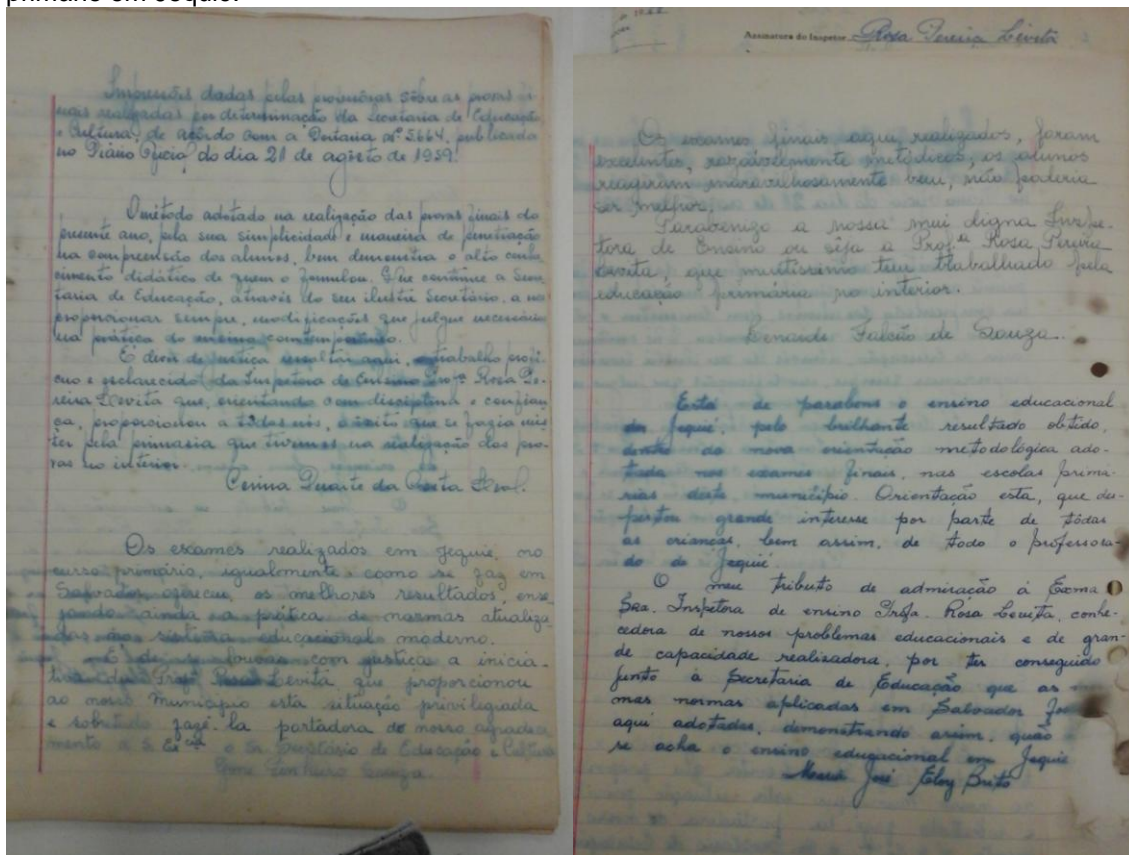 primário em Jequié.
Impressões dadas pelas professôras sôbre as provas fi-
nais realizadas por determinação da Secretaria de Educação
e Cultura, de acôrdo com a Portaria nº 5.664, publicada
no Diário Oficial do dia 21 de agôsto de 1959.
O método adotado na realização das provas finais do
presente ano, pela sua simplicidade e maneira de penetração
na compreensão dos alunos, bem demonstra o alto conhe
cimento didático de quem o formulou. Que continue a Secre
taria de Educação, através do seu ilustre Secretário, a nos
proporcionar sempre, modificações que julgue necessárias
na prática do ensino contemporâneo.
É dever de justiça ressaltar aqui, o trabalho profí-
cuo e esclarecido da Inspetora de Ensino Profª Rosa Pe-
reira Levita que, orientando com disciplina e confian
ça, proporcionou a tôdas nós, o êxito que se fazia mis
ter pela primasia que tivemos na realização das pro-
vas no interior.
Duarte da Costa Leal.
Os exames realizados em Jequié, no
curso primário, igualmente como se faz em
Salvador, ofereceu, os melhores resultados, ense
jando ainda a prática de normas atualiza
das sistema educacional moderno.
É de se louvar com justiça a inicia-
tiva da Profª Rosa Levita, que proporcionou
ao nosso Município esta situação priviligiada
e sobretudo fazê-la portadora do nosso agradeci
mento a S. Excia o Sr. Secretário de Educação e Cultura
Pinheiro Souza.
Assinatura do Inspetor Rosa Pereira Levita
Os exames finais aqui realizados, foram
excelentes, razoavelmente metódicos, os alunos
reagiram maravilhosamente bem, não poderia
ser melhor.
Parabenizo a nossa mui digna Inspe-
tora de Ensino ou seja a Profª Rosa Pereira
Levita, que muitíssimo tem trabalhado pela
educação primária no interior.
Zenaide Falcão de Souza.
Está de parabens o ensino educacional
de Jequié, pelo brilhante resultado obtido,
dentro da nova orientação metodológica ado-
tada nos exames finais, nas escolas primá-
rias deste município. Orientação esta, que des-
pertou grande interesse por parte de tôdas
as crianças, bem assim, de todo o professora-
do de Jequié.
O meu tributo de admiração à Exma
Sra. Inspetora de ensino Profa. Rosa Levita, conhe-
cedora de nossos problemas educacionais e de gran-
de capacidade realizadora, por ter conseguido
junto à Secretaria de Educação que as
mas normas aplicadas em Salvador
aqui adotadas, demonstrando assim, quão
se acha o ensino educacional em Jequié
Maria José Eloy Brito